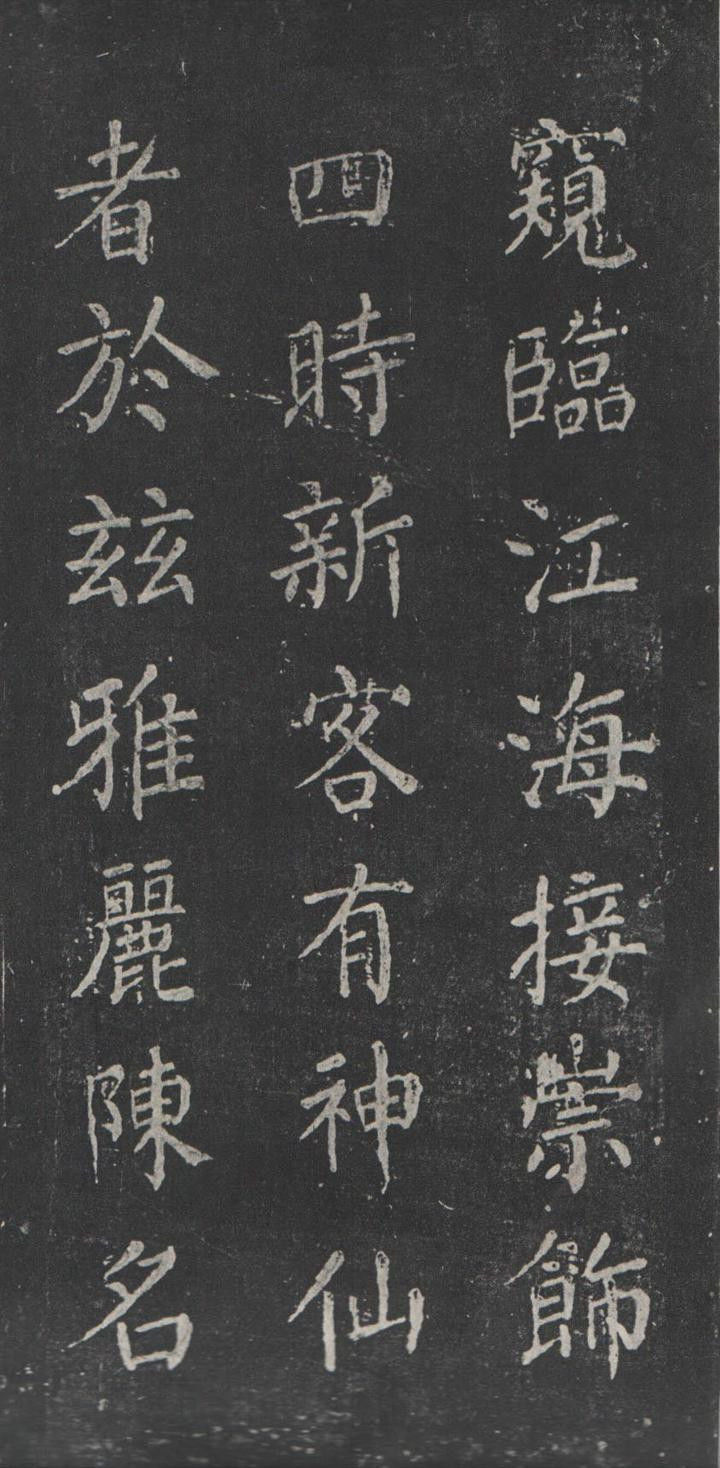 窺臨江海接崇飾
四時新客有神仙
者於玆雅麗陳名